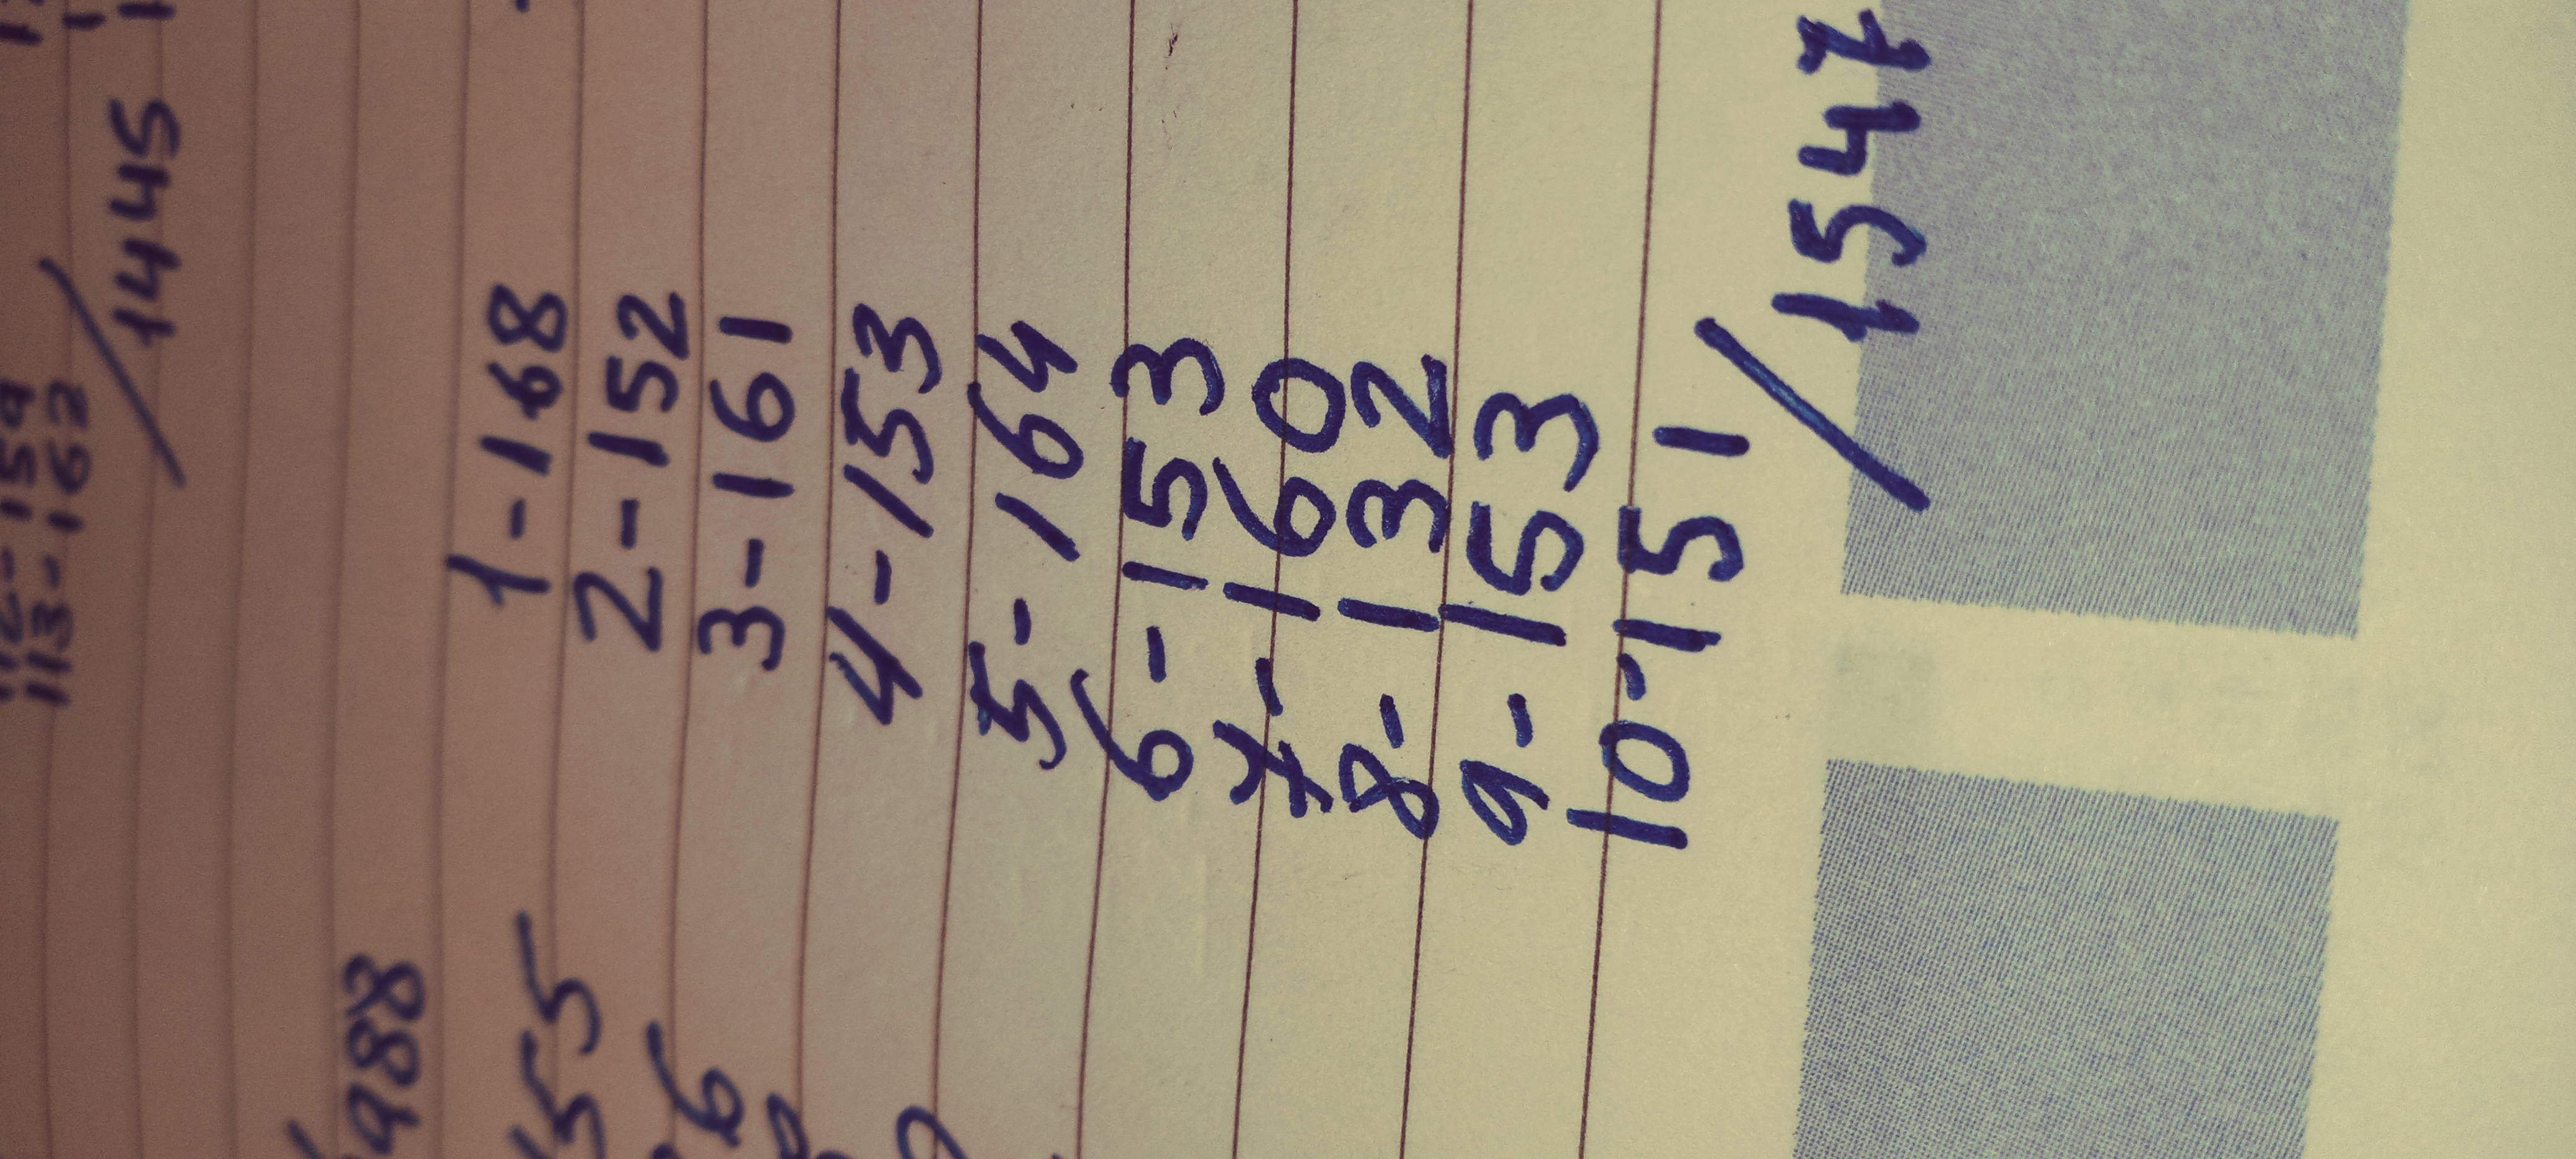 112-159
113-162
/1445
1-168
2-152
3-161
4-153
5-164
6-153
7-160
8-132
9-153
10-151
/1547
988
155